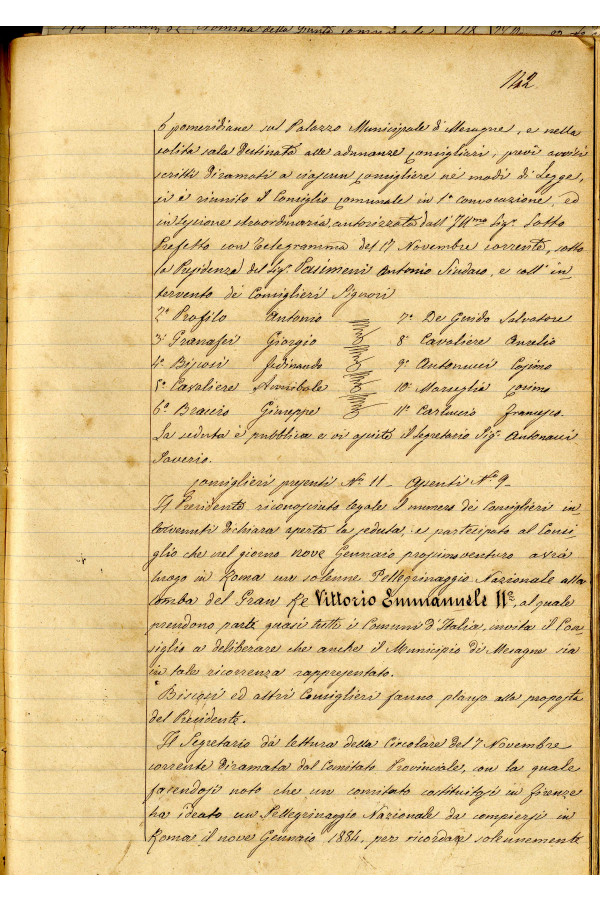 Nomina della Giunta comunale 118
142.
6 pomeridiane sul Palazzo Municipale di Mesagne, e nella
solita sala destinata alle adunanze consigliari, previi avvisi
scritti diramati a ciascun consigliere nei modi di Legge,
si è riunito il Consiglio comunale in 1ª convocazione, ed
in sezione straordinaria autorizzata dall'Ill.mo Sig. Sotto
Prefetto con telegramma del 17 Novembre corrente, sotto
la Presidenza del Sig. Pasimeni Antonio Sindaco, e coll'in-
tervento dei Consiglieri Signori
2º Profilo Antonio 7º De Guido Salvatore
3º Granafei Giorgio 8º Cavaliere Aurelio
4º Bisconi Ferdinando 9º Antonucci Cosimo
5º Cavaliere Annibale 10º Marseglia Cosimo
6º Braccio Giuseppe 11º Carluccio Francesco.
La seduta è pubblica e vi assiste il Segretario Sig. Antonucci
Saverio.
Consiglieri presenti N. 11 - Assenti Nº 9 -
Il Presidente riconosciuto legale il numero dei Consiglieri in-
tervenuti dichiara aperta la seduta, e partecipato al Consi-
glio che nel giorno nove Gennaio prossimo venturo avrà
luogo in Roma un solenne Pellegrinaggio Nazionale alla
tomba del Gran Re Vittorio Emmanuele IIº, al quale
prendono parte quasi tutti i Comuni d'Italia, invita il Con-
siglio a deliberare che anche il Municipio di Mesagne sia
in tale ricorrenza rappresentato.
Bisconi ed altri Consiglieri fanno plauso alla proposta
del Presidente.
Il Segretario dà lettura della Circolare del 7 Novembre
corrente diramata dal Comitato Provinciale, con la quale
facendosi noto che un comitato costituitosi in Firenze
ha ideato un Pellegrinaggio Nazionale da compiersi in
Roma il nove Gennaio 1884, per ricordare solennemente